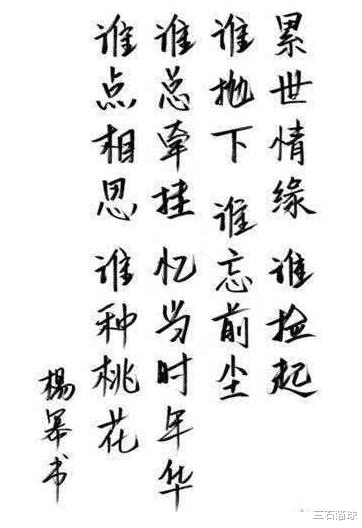 累世情缘 谁捡起
谁抛下 谁忘前尘
谁总牵挂 忆当时年华
谁点相思 谁种桃花
楊幂书
三石猫球